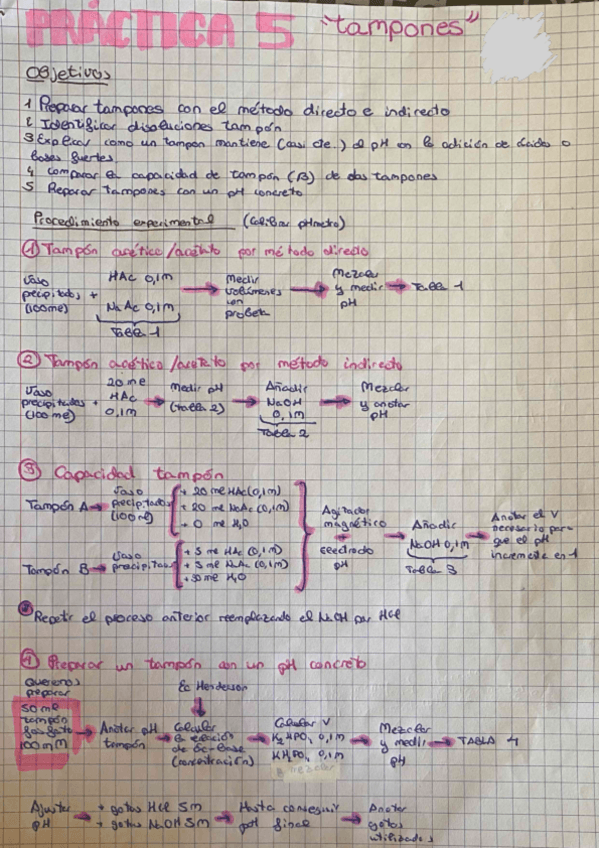 PRÁCTICA 5 "tampones"
Objetivos
1 Preparar tampones con el método directo e indirecto
2 Identificar disoluciones tampón
3 Explicar como un tampón mantiene (casi cte.) el pH en la adición de ácidos o
bases fuertes
4 comparar la capacidad de tampón (β) de dos tampones
5 Preparar tampones con un pH concreto
Procedimiento experimental (Calibrar pHmetro)
① Tampón acético/acetato por método directo
Vaso precipitados (100ml) + HAc 0,1M NaAc 0,1M Tabla 1 → Medir volúmenes con probeta → Mezclar y medir pH → Tabla 1
② Tampón acético/acetato por método indirecto
Vaso precipitados (100ml) + 20 ml HAc 0,1M → Medir pH (tabla 2) → Añadir NaOH 0,1M Tabla 2 → Mezclar y anotar pH
③ Capacidad tampón
Tampón A → Vaso precipitado (100ml)
+ 20 ml HAc (0,1M)
+ 20 ml NaAc (0,1M)
+ 0 ml H2O
Tampón B → Vaso precipitados
+ 5 ml HAc (0,1M)
+ 5 ml NaAc (0,1M)
+ 30 ml H2O
Agitador magnético + electrodo pH → Añadir NaOH 0,1M Tabla 3 → Anotar el V necesario para que el pH incremente en 1
Repetir el proceso anterior reemplazando el NaOH por HCl
④ Preparar un tampón con un pH concreto
Queremos preparar 50 ml tampón fosfato 100mM → Anotar pH tampón → Calcular la relación de Ác-Base (concentración) → Calcular V K2HPO4 0,1M KH2PO4 0,1M → Mezclar y medir pH → TABLA 4
Ec Henderson
Ajustar pH → + gotas HCl 5M + gotas NaOH 5M → Hasta conseguir pH final → Anotar gotas utilizadas